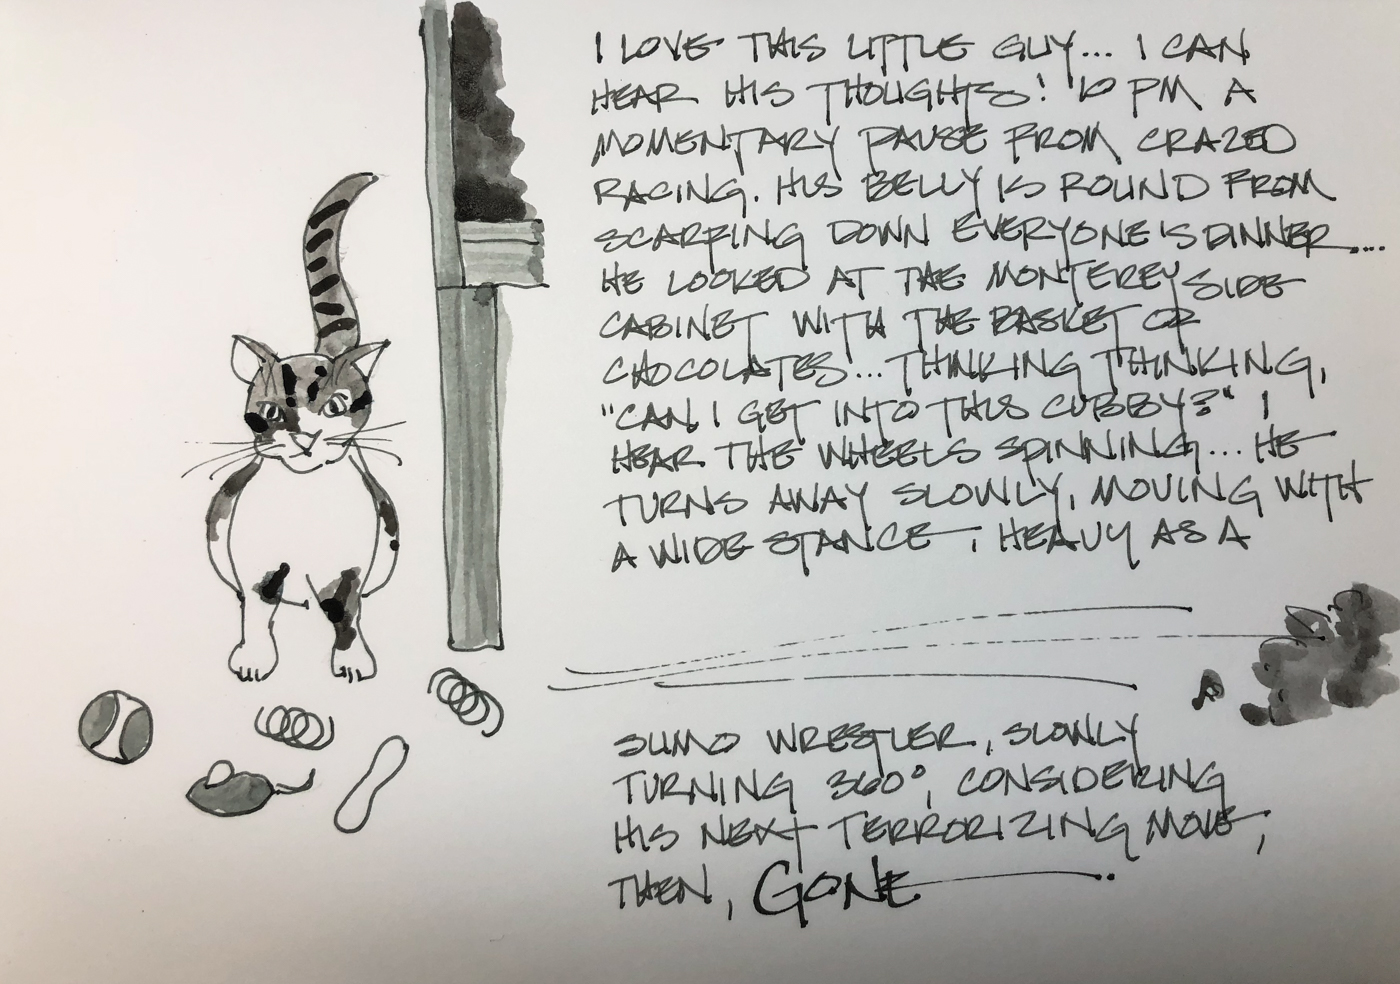 I LOVE THIS LITTLE GUY... I CAN
HEAR HIS THOUGHTS! 10 PM A
MOMENTARY PAUSE FROM CRAZED
RACING. HIS BELLY IS ROUND FROM
SCARFING DOWN EVERYONE'S DINNER....
HE LOOKED AT THE MONTEREY SIDE
CABINET WITH THE BASKET OF
CHOCOLATES... THINKING THINKING,
"CAN I GET INTO THIS CUBBY?" I
HEAR THE WHEELS SPINNING... HE
TURNS AWAY SLOWLY, MOVING WITH
A WIDE STANCE, HEAVY AS A
SUMO WRESTLER, SLOWLY
TURNING 360°, CONSIDERING
HIS NEXT TERRORIZING MOVE,
THEN, GONE